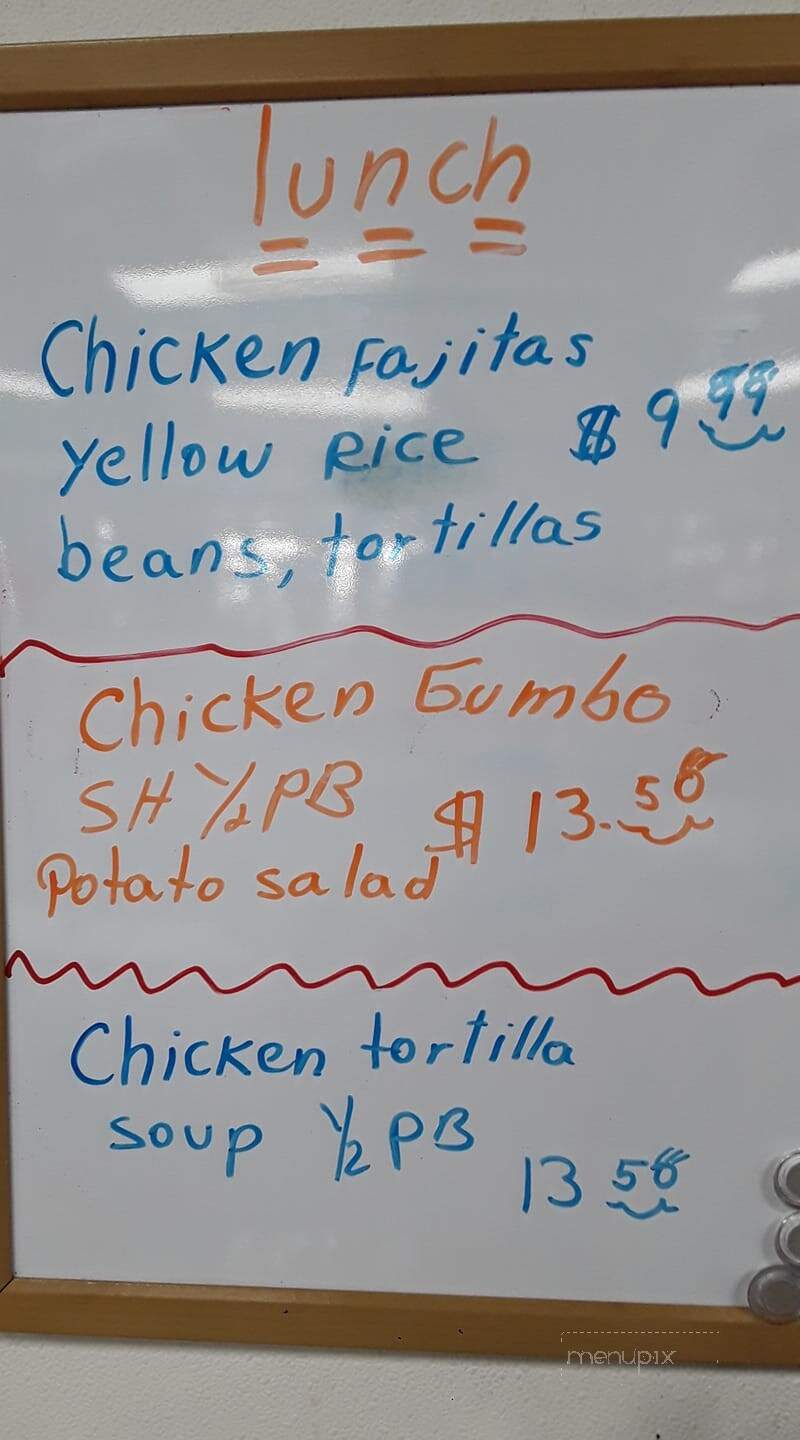 lunch
Chicken Fajitas
yellow Rice $9.99
beans, tortillas
Chicken Gumbo
SH 1/2 PB $13.50
Potato salad
Chicken tortilla
soup 1/2 PB
13 50
menupix